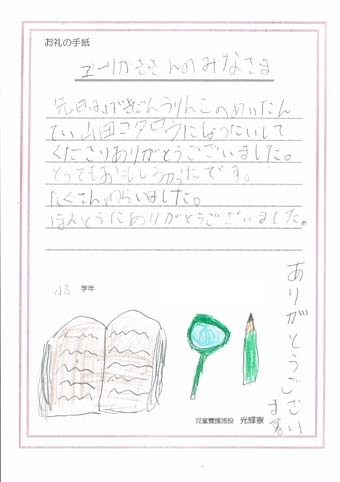 お礼の手紙
ユーりかききんのみなさま
先日はげきだんうりんこのめいたん
てい山田コタロウにしょうたいして
くださりありがとうございました。
とってもおもしろかったです。
たくさんわらいました。
ほんとうにありがとうございました。
小3 学年
ありがとうござい
ます
児童養護施設 光輝寮